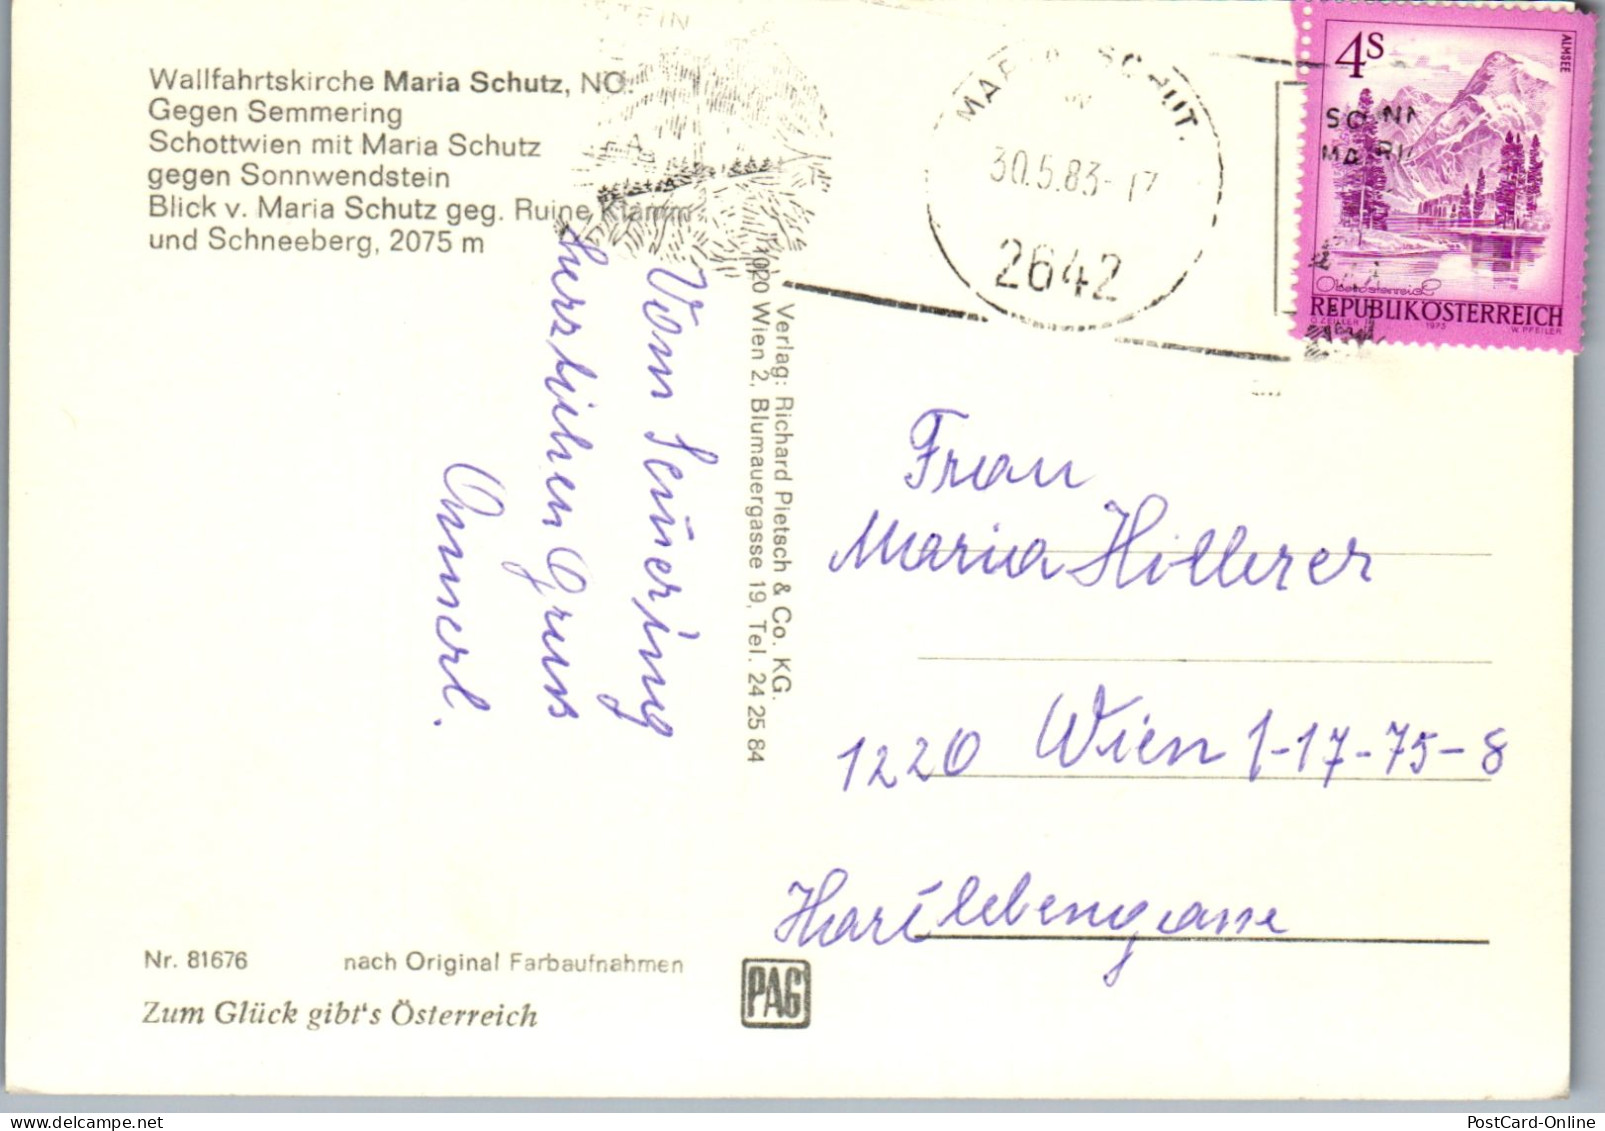 Wallfahrtskirche Maria Schutz, NÖ.
Gegen Semmering
Schottwien mit Maria Schutz
gegen Sonnwendstein
Blick v. Maria Schutz geg. Ruine Klamm
und Schneeberg, 2075 m
Vom Semmering
herzlichen Gruss
Annerl.
Verlag: Richard Pietsch & Co. KG.
1020 Wien 2, Blumauergasse 19, Tel. 24 25 84
30.5.83-17
2642
4S
ALMSEE
Oberösterreich
REPUBLIK ÖSTERREICH
O. ZEILLER 1973 W. PFEILER
Frau
Maria Hillerer
1220 Wien 1-17-75-8
Hartlebengasse
Nr. 81676 nach Original Farbaufnahmen
Zum Glück gibt's Österreich
PAG
PostCard-Online